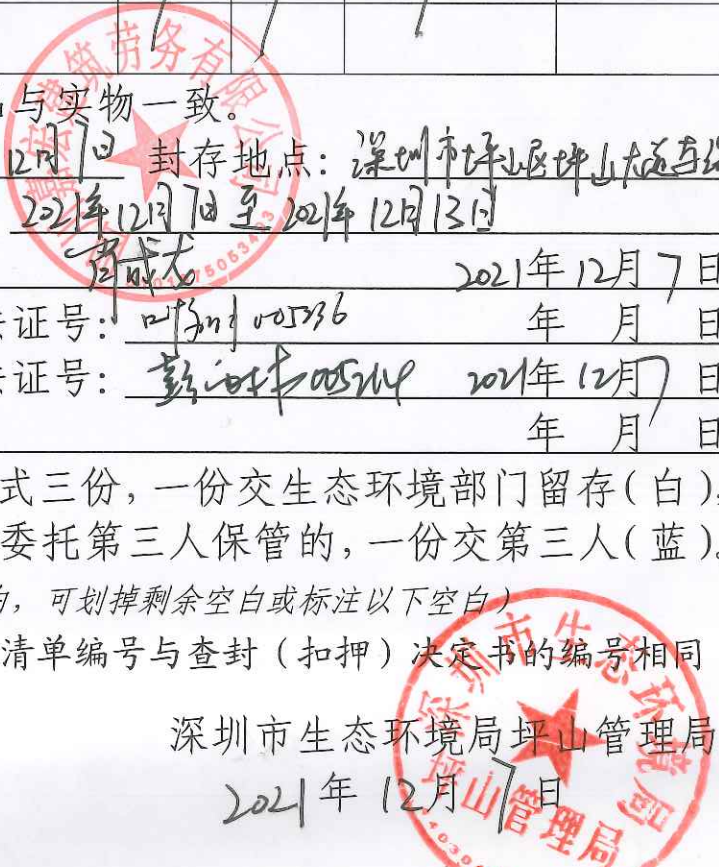 与实物一致。
12月7日 封存地点：深圳市坪山区坪山大道
2021年12月7日至2021年12月13日
肖成龙 2021年12月7日
证号： 005336 年 月 日
证号： 彭 005214 2021年12月7日
年 月 日
式三份，一份交生态环境部门留存（白）
委托第三人保管的，一份交第三人（蓝）。
，可划掉剩余空白或标注以下空白）
清单编号与查封（扣押）决定书的编号相同
深圳市生态环境局坪山管理局
2021年12月7日
建筑劳务有限公司
深圳市生态环境局
坪山管理局